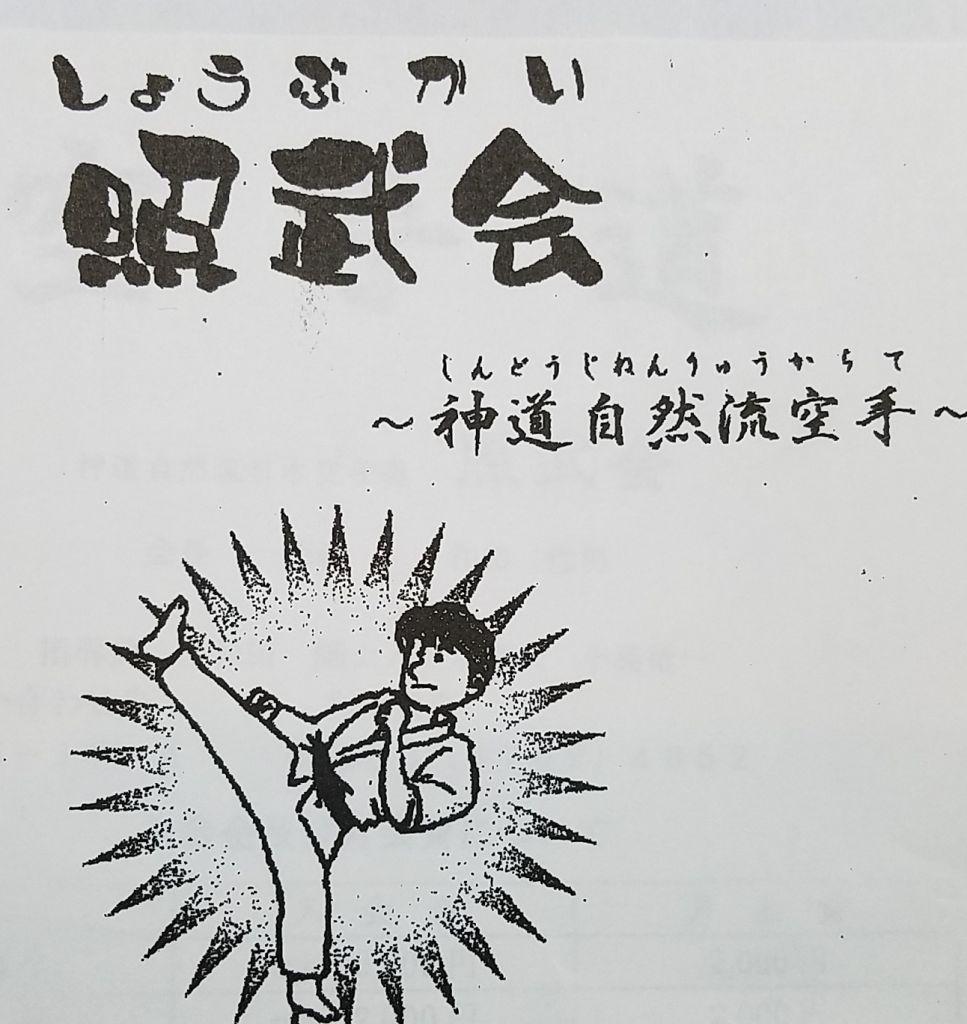 しょうぶかい
照武会
しんどうじねんりゅうからて
～神道自然流空手～